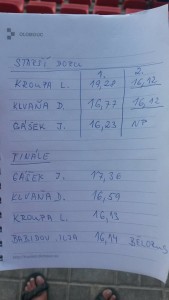 STARŠÍ DORCI
1. 2.
KROUPA L. 19,28 16,12
KLVAŇA D. 16,77 16,12
GAŠEK J. 16,23 NP
FINÁLE
GAŠEK J. 17,36
KLVAŇA D. 16,59
KROUPA L. 16,93
16,14